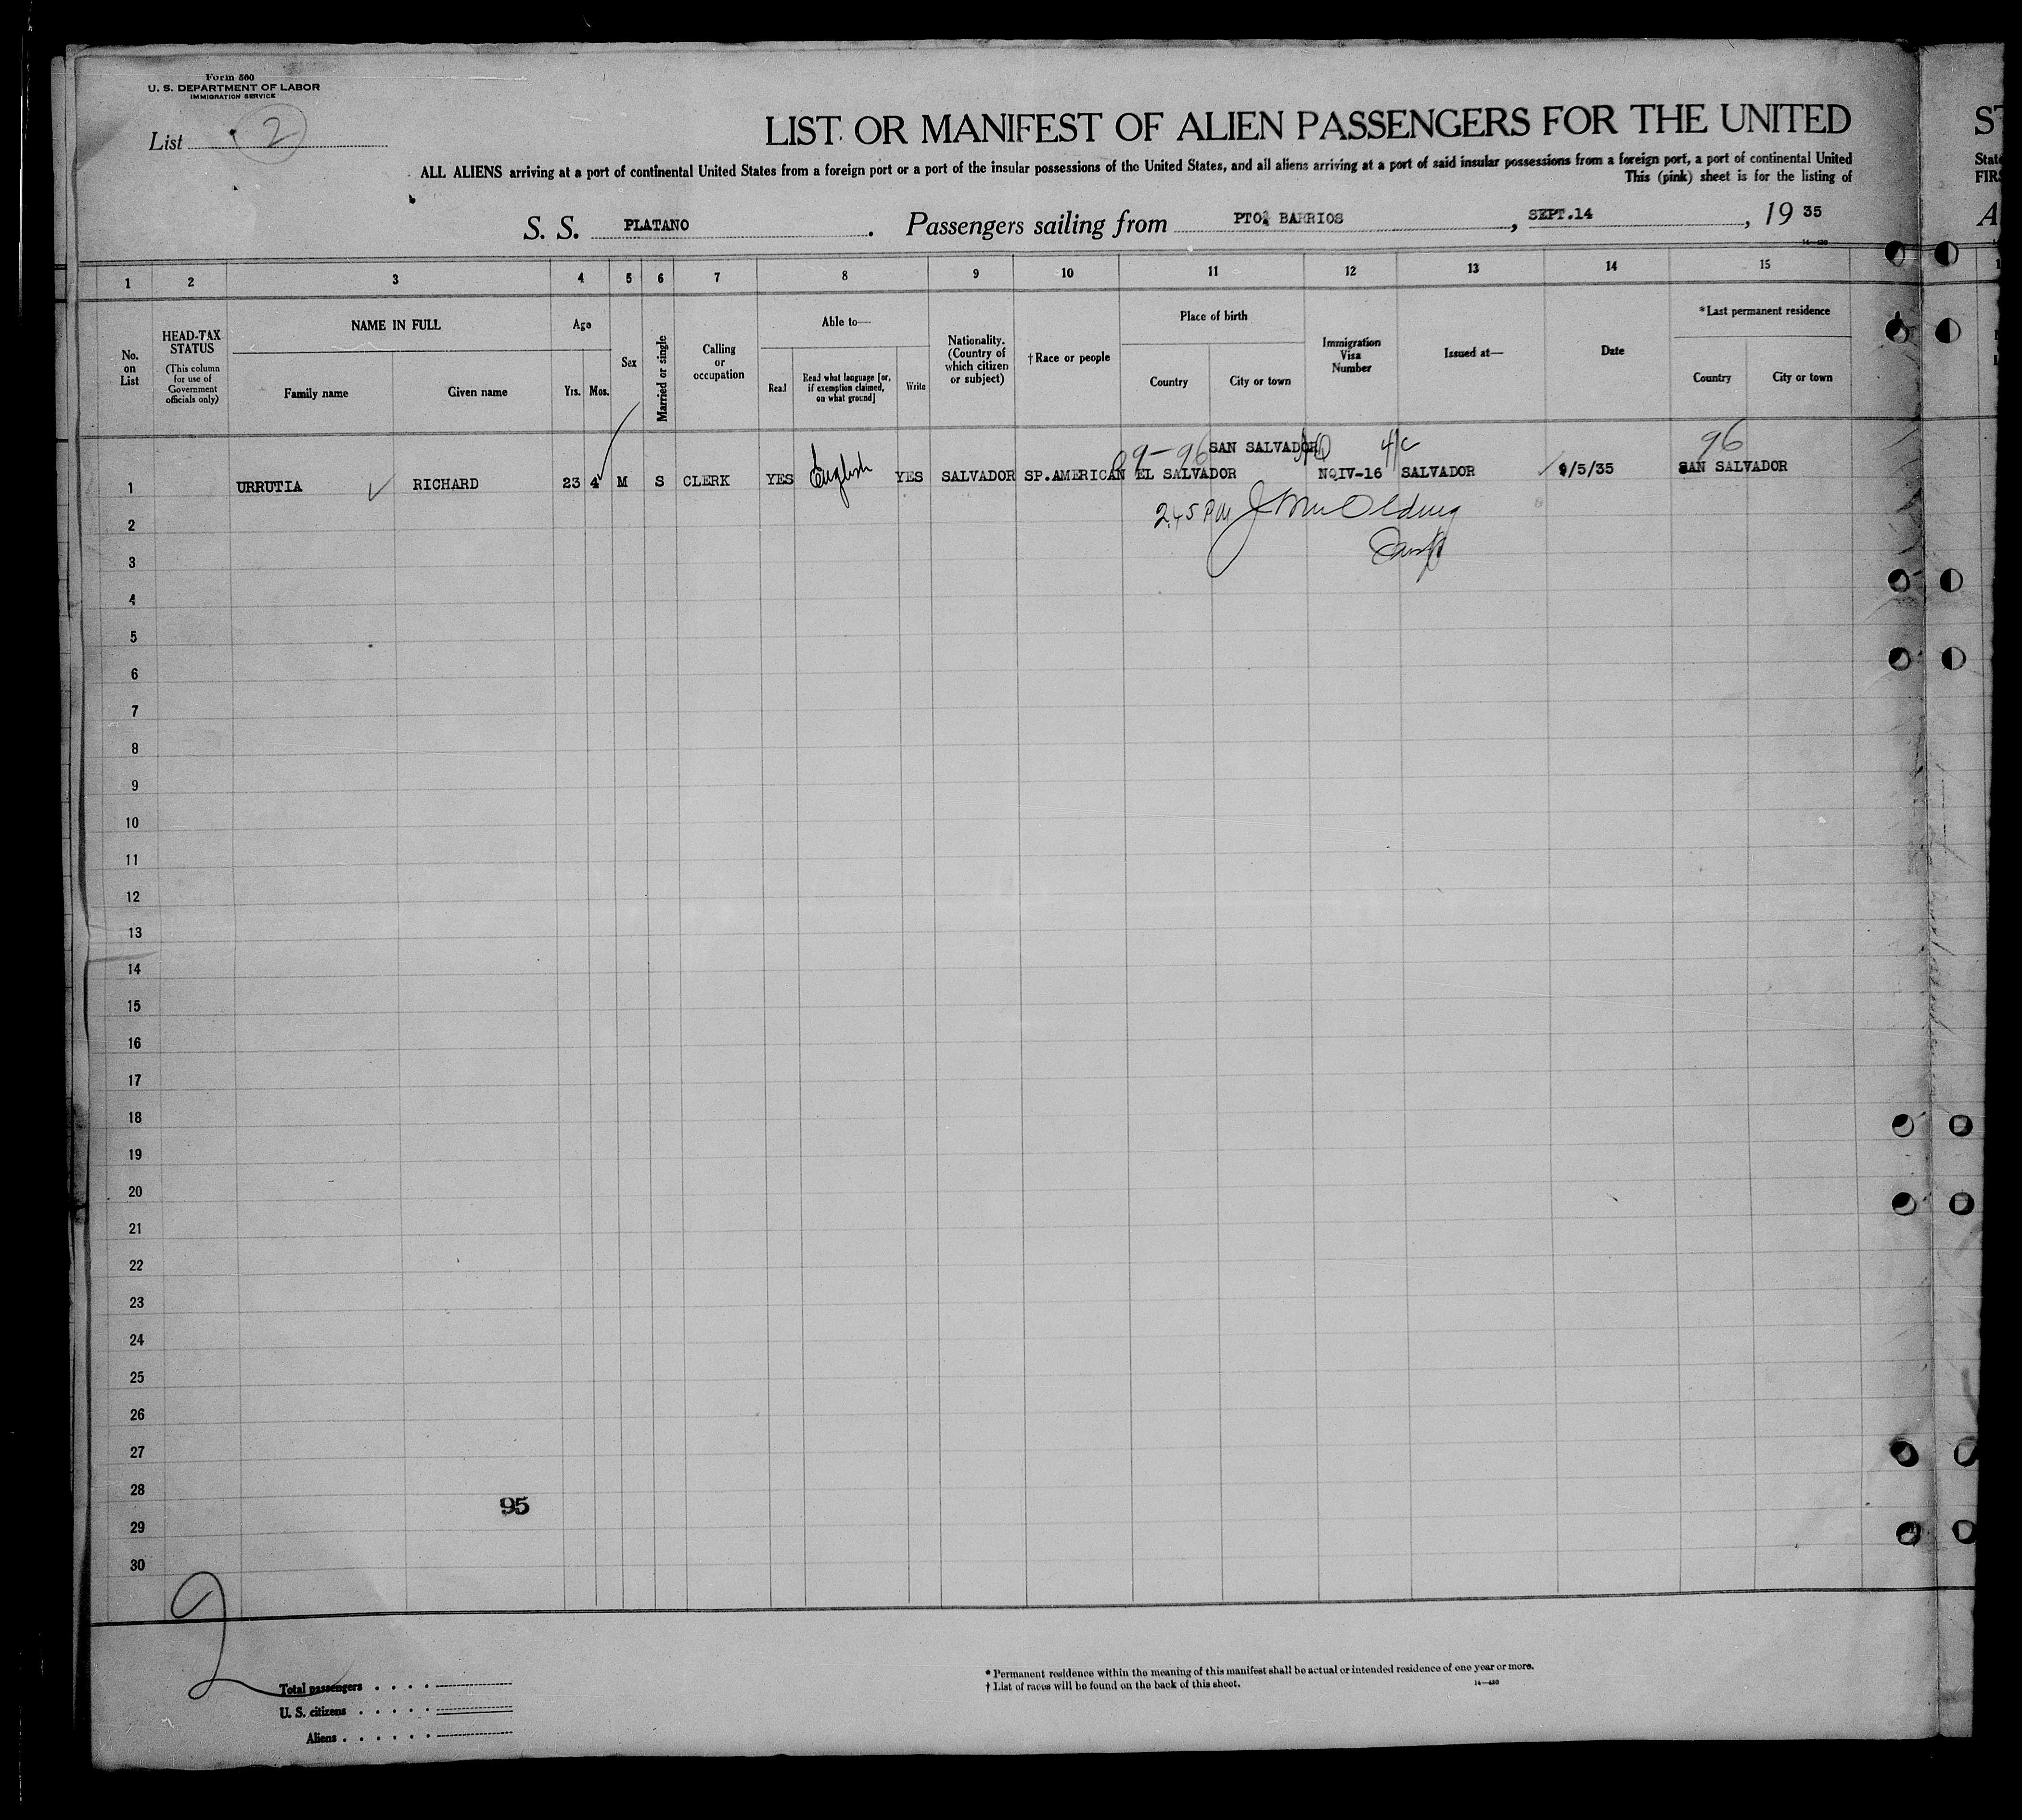 Form 500
U. S. DEPARTMENT OF LABOR
IMMIGRATION SERVICE
List 2
LIST OR MANIFEST OF ALIEN PASSENGERS FOR THE UNITED
ST
ALL ALIENS arriving at a port of continental United States from a foreign port or a port of the insular possessions of the United States, and all aliens arriving at a port of said insular possessions from a foreign port, a port of continental United
State
This (pink) sheet is for the listing of
FIRS
S. S. PLATANO. Passengers sailing from PTO. BARRIOS, SEPT.14, 19 35
A
1 2 3 4 5 6 7 8 9 10 11 12 13 14 15
No. on List
HEAD-TAX STATUS
(This column for use of Government officials only)
NAME IN FULL
Family name
Given name
Age
Yrs. Mos.
Sex
Married or single
Calling or occupation
Able to—
Read
Read what language [or, if exemption claimed, on what ground]
Write
Nationality. (Country of which citizen or subject)
†Race or people
Place of birth
Country
City or town
Immigration Visa Number
Issued at—
Date
*Last permanent residence
Country
City or town
09-96 SAN SALVADOR 4/c 96
1 URRUTIA RICHARD 23 4 M S CLERK YES English YES SALVADOR SP.AMERICAN EL SALVADOR NQIV-16 SALVADOR 9/5/35 SAN SALVADOR
2 2.45 PM
3
4
5
6
7
8
9
10
11
12
13
14
15
16
17
18
19
20
21
22
23
24
25
26
27
28
95
29
30
2
Total passengers
U. S. citizens
Aliens
* Permanent residence within the meaning of this manifest shall be actual or intended residence of one year or more.
† List of races will be found on the back of this sheet.
14—430